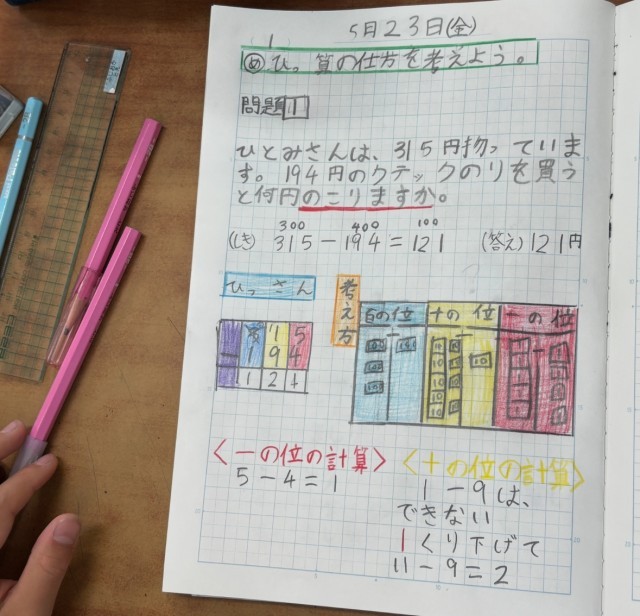 5月23日(金)
め ひっ算の仕方を考えよう。
問題1
ひとみさんは、315円持っていま
す。194円のクテックのりを買う
と何円のこりますか。
300 400 100
(しき) 315-194=121 (答え)121円
ひっさん
考え方
百の位 十の位 一の位
315
-194
121
100 100
100
100
10 10 10
10 10
10 10
10 10
10 10
<一の位の計算>
5-4=1
<十の位の計算>
1-9は、
できない
1くり下げて
11-9=2